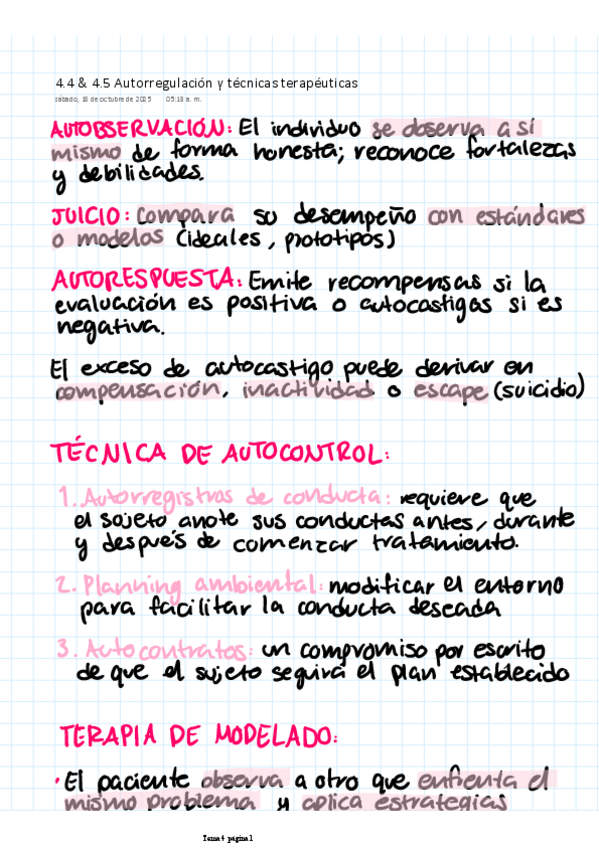 4.4 & 4.5 Autorregulación y técnicas terapéuticas
sábado, 18 de octubre de 2025 05:18 a. m.
AUTOBSERVACIÓN: El individuo se observa a sí
mismo de forma honesta; reconoce fortalezas
y debilidades.
JUICIO: Compara su desempeño con estándares
o modelos (ideales, prototipos)
AUTORESPUESTA: Emite recompensas si la
evaluación es positiva o autocastigos si es
negativa.
El exceso de autocastigo puede derivar en
compensación, inactividad o escape (suicidio)
TÉCNICA DE AUTOCONTROL:
1. Autorregistros de conducta: requiere que
el sujeto anote sus conductas antes, durante
y después de comenzar tratamiento.
2. Planning ambiental: modificar el entorno
para facilitar la conducta deseada
3. Auto contratos: un compromiso por escrito
de que el sujeto seguirá el plan establecido
TERAPIA DE MODELADO:
• El paciente observa a otro que enfrenta el
mismo problema y aplica estrategias
Tema 4 página 1